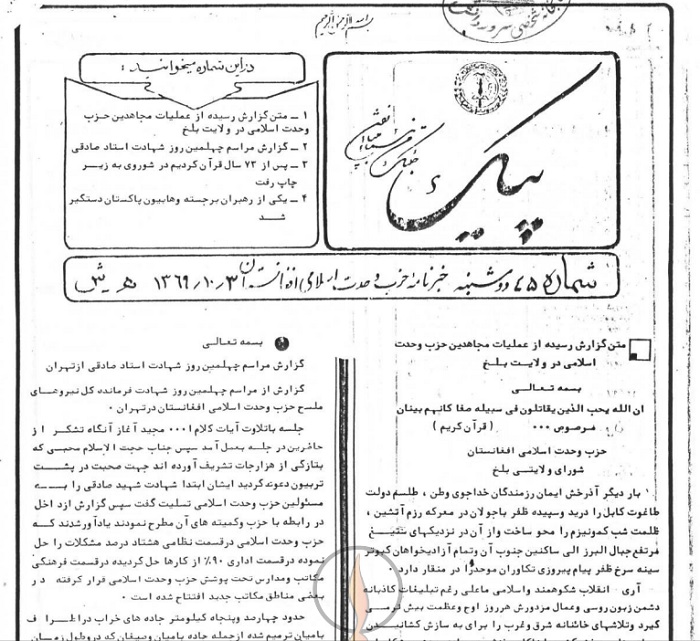 بسم الله الرحمن الرحیم
در این شماره میخوانند :
۱ ــ متن گزارش رسیده از عملیات مجاهدین حزب
وحدت اسلامی در ولایت بلخ
۲ ــ گزارش مراسم چهلمین روز شهادت استاد صادقی
۳ ــ پس از ۷۳ سال قرآن کردیم در شوروی به زیر
چاپ رفت
۴ ــ یکی از رهبران برجسته وهابیون پاکستان دستگیر
شد
پیک
شماره ۴۵ دوشنبه خبرنامه حزب وحدت اسلامی افغانستان ۱۳۶۹/۱۰/۳ هـ ش
متن گزارش رسیده از عملیات مجاهدین حزب وحدت
اسلامی در ولایت بلخ
بسمه تعالی
ان الله یحب الذین یقاتلون فی سبیله صفا کانهم بینان
مرصوص ۰۰۰ ( قرآن کریم )
حزب وحدت اسلامی افغانستان
شورای ولایتی بلخ
بار دیگر آذرخش ایمان رزمندگان خداجوی وطن ، طلسم دولت
طاغوت کابل را درید وسپیده ظفر باجولان در معرکه رزم آتشین ،
ظلمت شب کمونیزم را محو ساخت واز آن در نزدیکهای ستیغ
مرتفع جبال البرز الی ساکنین جنوب آن وتمام آزادیخواهان کبوتر
سینه سرخ ظفر پیام پیروزی تکاوران موحد را در منقار دارد ۰
آری انقلاب شکوهمند واسلامی ماعلی رغم تبلیغات کاذبانه
دشمن زبون روسی وعمال مزدورش هرروز اوج وعظمت بیش ترمی
گیرد وتلاشهای خائنانه شرق وغرب را برای به سازش کشانیدن
بسمه تعالی
گزارش مراسم چهلمین روز شهادت استاد صادقی ازتهران
گزارش از مراسم چهلمین روز شهادت فرمانده کل نیروهای
ملسح حزب وحدت اسلامی افغانستان درتهران ۰
جلسه باتلاوت آیات کلام ا۰۰۰ مجید آغاز آنگاه تشکر از
حاضرین در جلسه بعمل آمد سپس جناب حجت الاسلام محبی که
بتازگی از هزارجات تشریف آورده اند جهت صحبت در پشت
تربیون دعوت گردید ایشان ابتدا شهادت شهید صادقی را به
مسئولین حزب وحدت اسلامی تسلیت گفت سپس گزارش ازد اخل
در رابطه با حزب وکمیته های آن مطرح نمودند یادآورشدند که
حزب وحدت اسلامی درقسمت نظامی هشتاد درصد مشکلات را حل
نموده درقسمت اداری ۹۰٪ از کارها حل کردیده درقسمت فرهنگی
مکاتب ومدارس تحت پوشش حزب وحدت اسلامی قرار گرفته در
بعضی مناطق مکاتب جدید افتتاح شده است ۰
حدود چهارصد وپنجاه کیلومتر جاده های خراب دراطراف
بامیان ترمیم شده ازجمله جاده بامیان